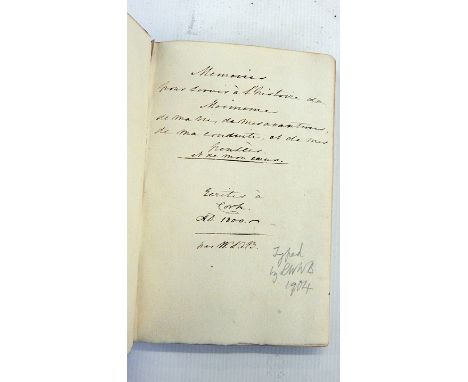 Memoires
pour servir à l'histoire de
Moimeme
de ma vie, de mes avantures,
de ma conduite, et de mes
et de mon cœur.
Ecrites à
Cork
A.D. 1800.
par
Typed
by
1904